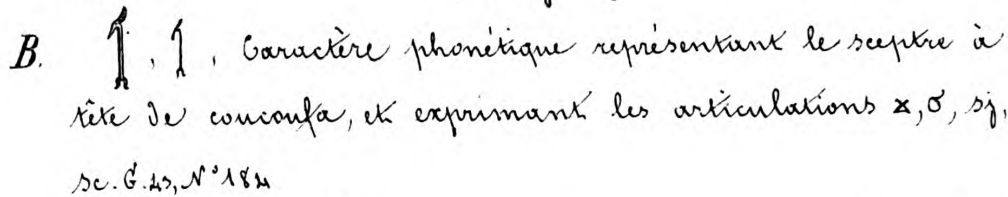 B. 𓌀, 𓌀, Caractère phonétique représentant le sceptre à
tête de coucoufa, et exprimant les articulations ϫ, ϭ, sj,
sc. G. 43, N° 184